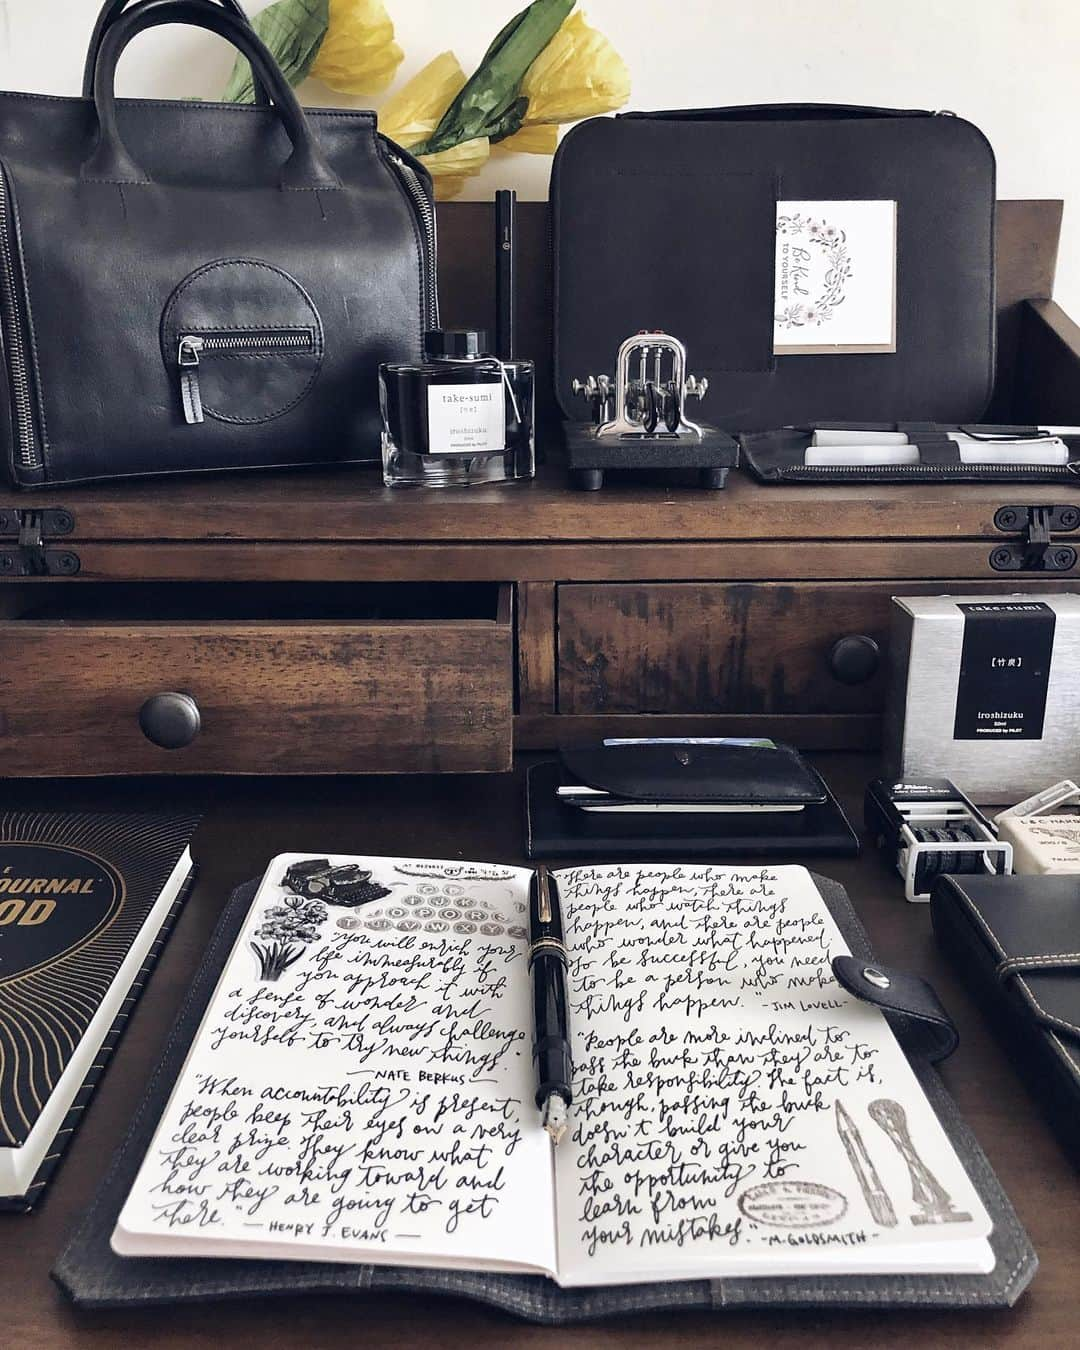 Be Kind
TO YOURSELF
take-sumi
[竹炭]
iroshizuku
50ml
PRODUCED by PILOT
take-sumi
[竹炭]
iroshizuku
50ml
PRODUCED by PILOT
JOURNAL
OD
L & C HARD
TRADE
"You will enrich your
life immeasurably if
you approach it with
a sense of wonder and
discovery, and always challenge
yourself to try new things."
—NATE BERKUS—
"When accountability is present,
people keep their eyes on a very
clear prize. They know what
they are working toward and
how they are going to get
there."
—HENRY J. EVANS—
"There are people who make
things happen, there are
people who watch things
happen, and there are people
who wonder what happened.
To be successful, you need
to be a person who makes
things happen."
-JIM LOVELL-
"People are more inclined to
pass the buck than they are to
take responsibility. The fact is,
though, passing the buck
doesn't build your
character or give you
the opportunity to
learn from
your mistakes."
-M. GOLDSMITH-